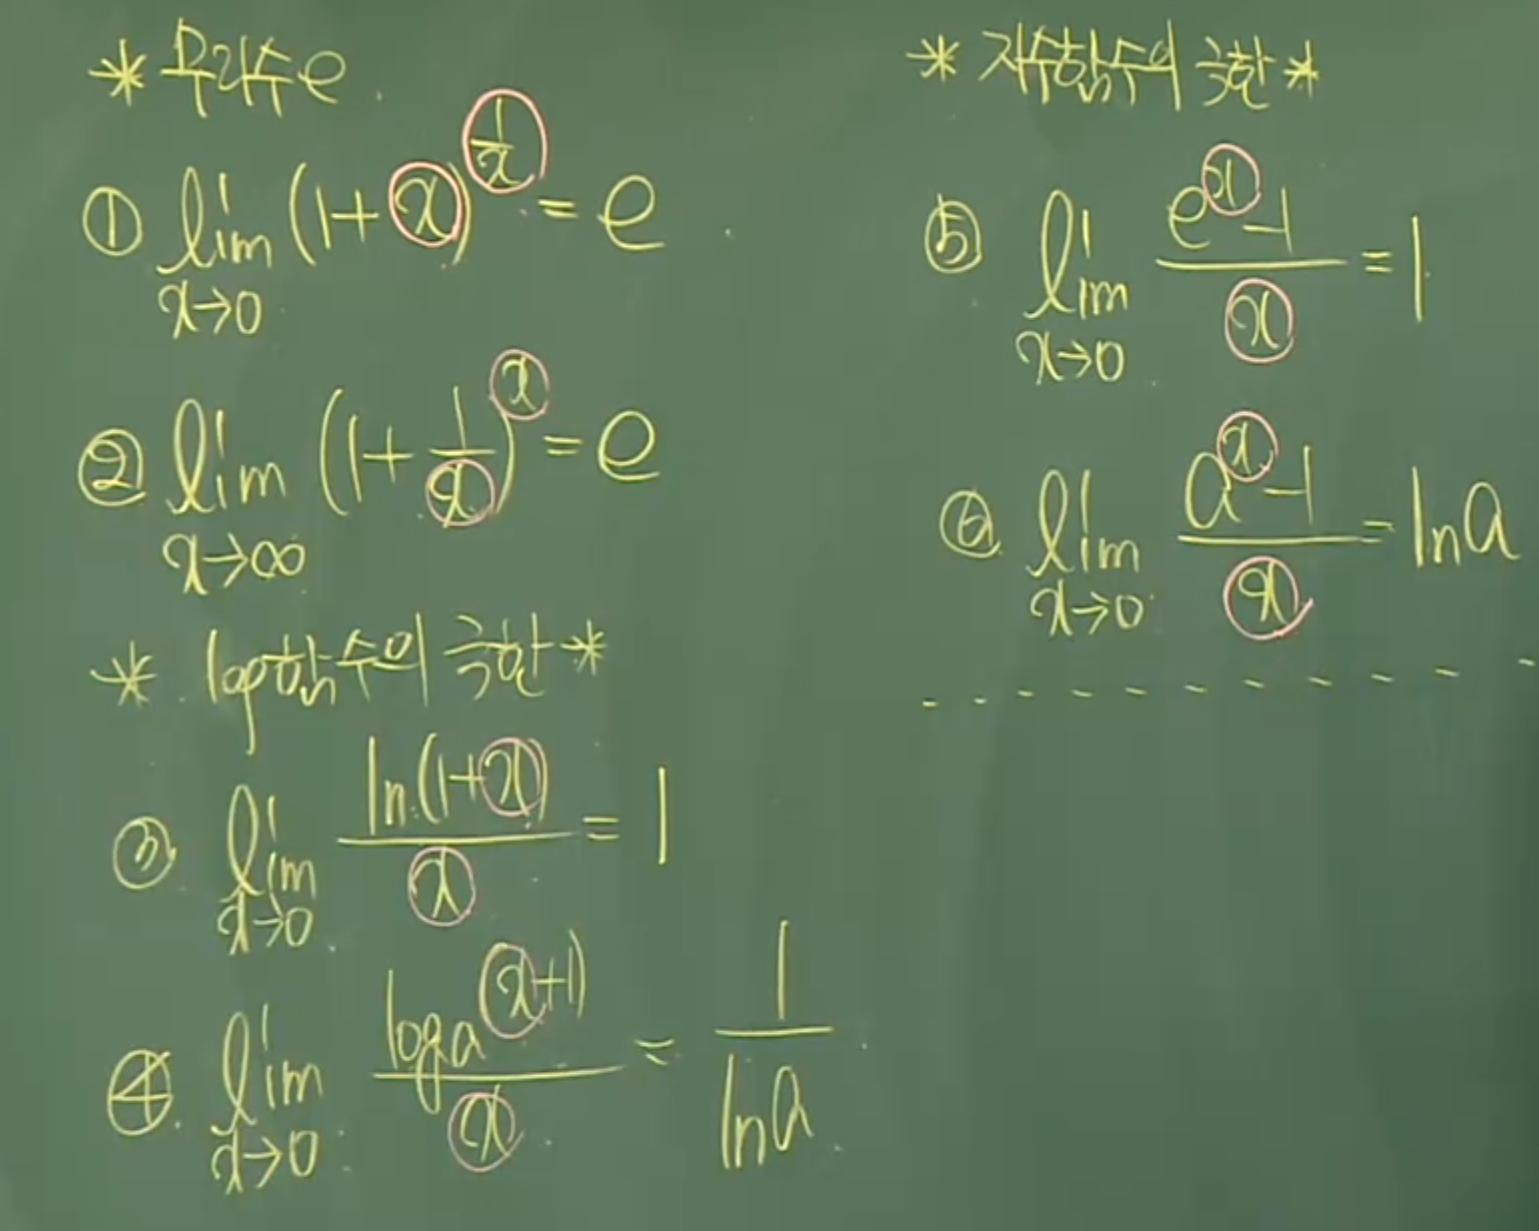 * 무리수 e
① lim_{x→0} (1+x)^{1/x} = e
② lim_{x→∞} (1+1/x)^x = e
* log함수의 극한 *
③ lim_{x→0} ln(1+x)/x = 1
④ lim_{x→0} log_a(x+1)/x = 1/ln a
* 지수함수의 극한 *
⑤ lim_{x→0} (e^x-1)/x = 1
⑥ lim_{x→0} (a^x-1)/x = ln a